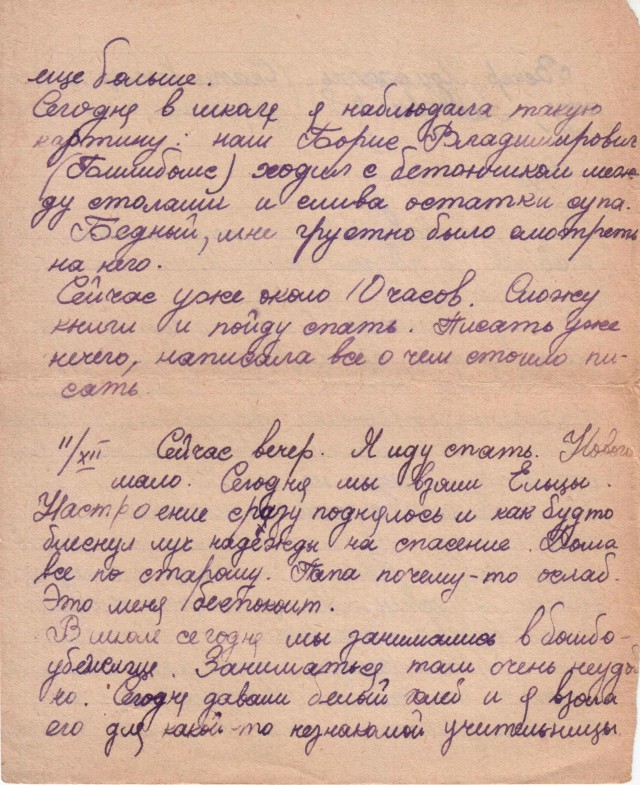 еще больше.
Сегодня в школе я наблюдала такую
картину: наш Борис Владимирович
(Билибоис) ходил с бетончиком меж-
ду столами и слива остатки супа.
Бедный, мне грустно было смотреть
на него.
Сейчас уже около 10 часов. Сложу
книги и пойду спать. Писать уже
нечего, написала все о чем стоило пи-
сать.
11/XII Сейчас вечер. Я иду спать. Нового
мало. Сегодня мы взяли Ельцы.
Настроение сразу поднялось и как будто
блеснул луч надежды на спасение. Дома
все по старому. Папа почему-то ослаб.
Это меня беспокоит.
В школе сегодня мы занимались в бомбо-
убежище. Заниматься там очень неудоб
но. Сегодня давали белый хлеб и я взяла
его для какой-то незнакомой учительницы